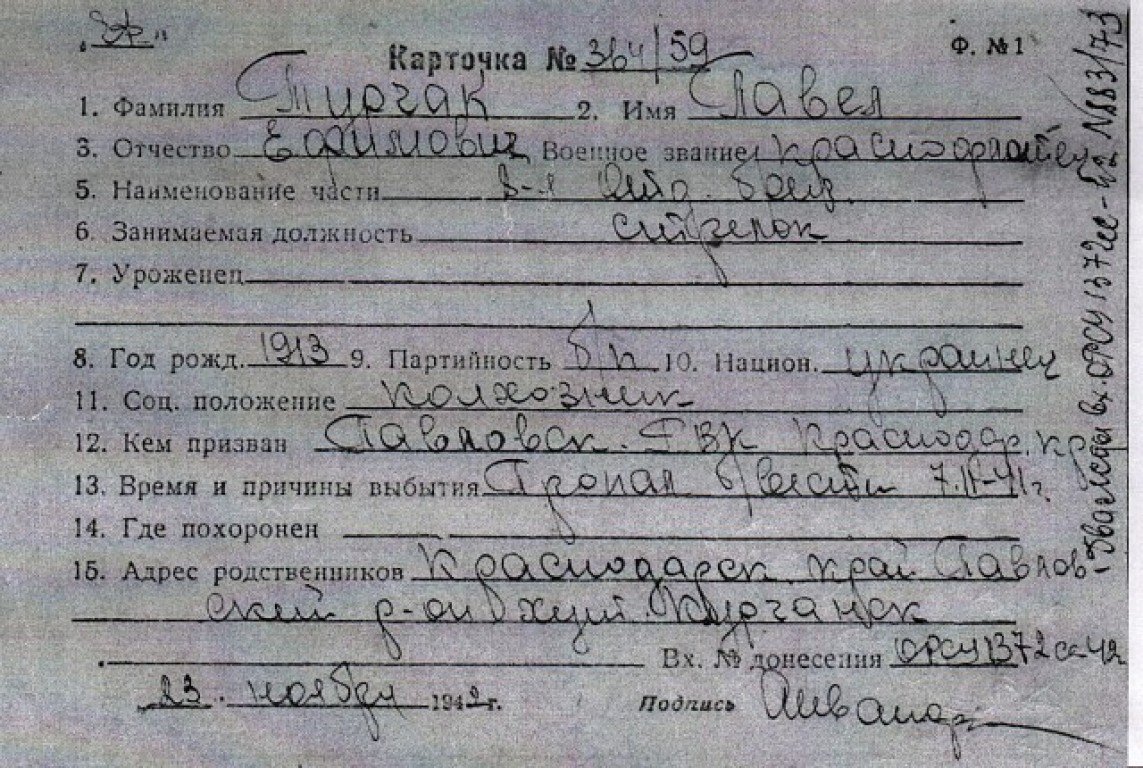 Карточка № 364/59 Ф. №1
1. Фамилия Турчак 2. Имя Павел
3. Отчество Ефимович Военное звание красноармеец
5. Наименование части 8-я отд. бриг.
6. Занимаемая должность стрелок
7. Уроженец
8. Год рожд. 1913 9. Партийность б/п 10. Национ. украинец
11. Соц. положение колхозник
12. Кем призван Павловск. РВК Краснодар. кр
13. Время и причины выбытия Пропал б/вести 41 г.
14. Где похоронен
15. Адрес родственников Краснодарск. край Павлов-
ский р-он хут. Курганск
Вх. № донесения 1372 42
23. ноября 1942 г. Подпись
Вх. 1372 42 № 883/73